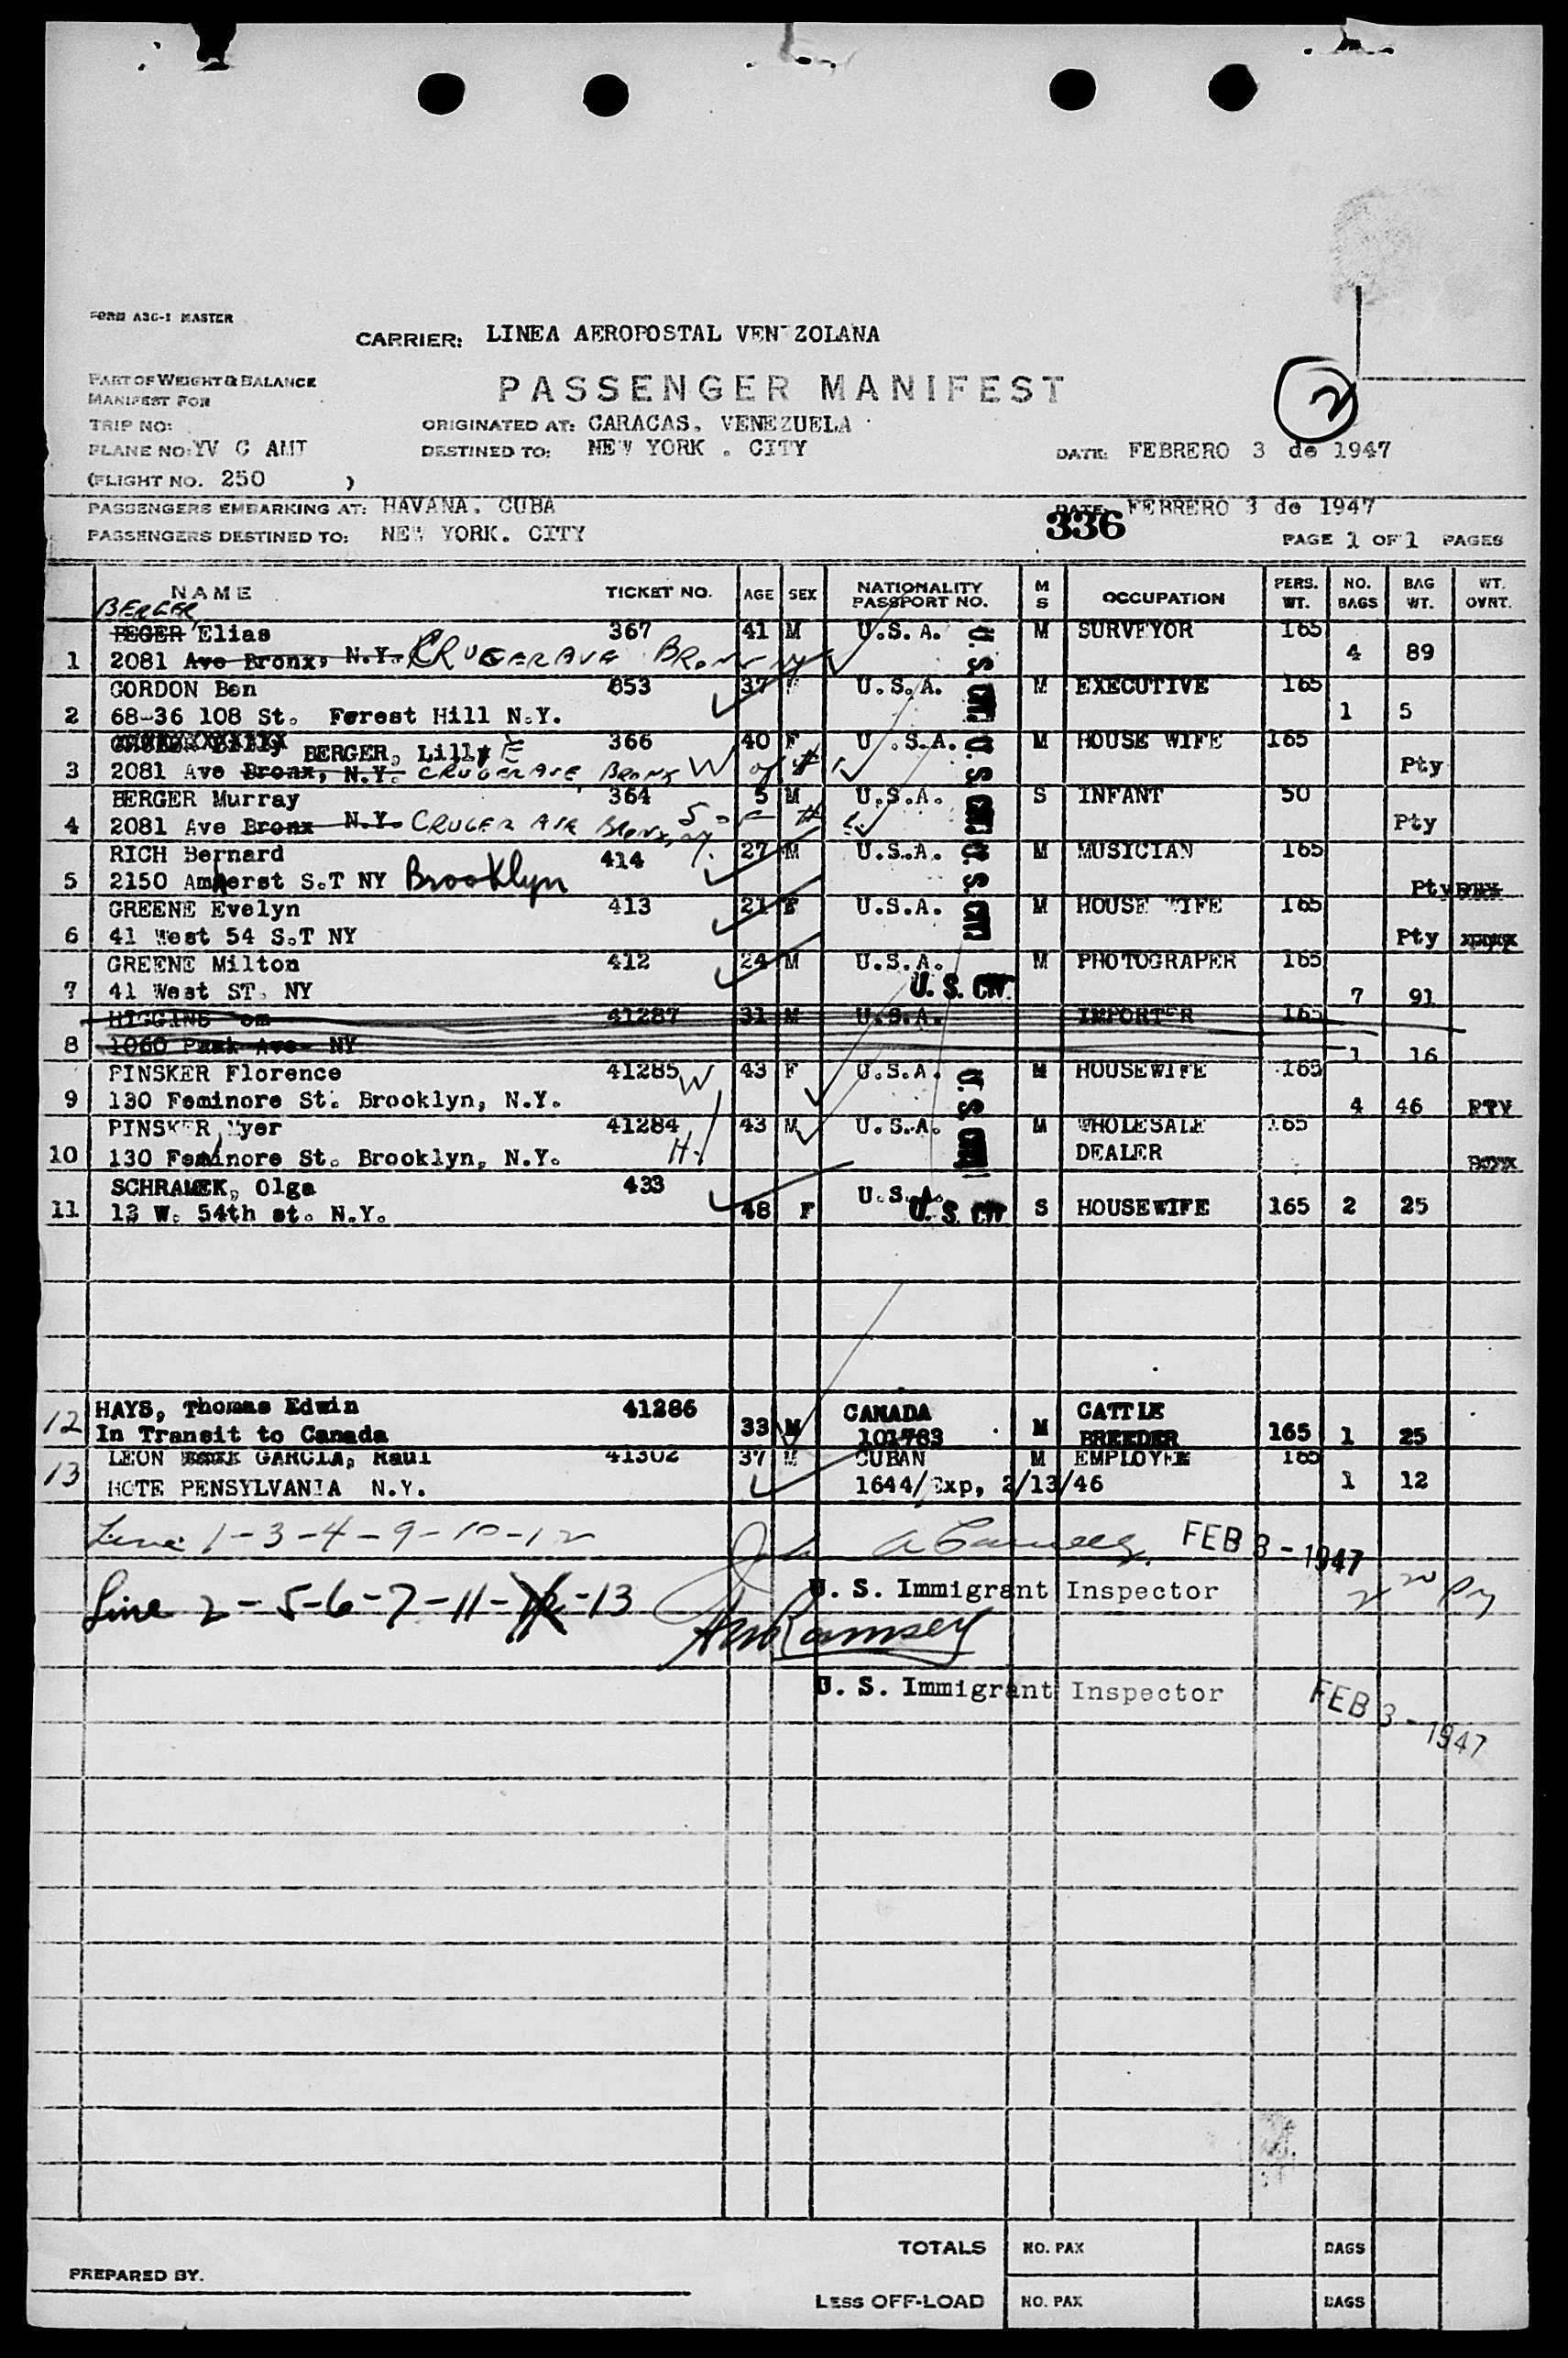 FORM ASC-1 MASTER
CARRIER: LINEA AEROPOSTAL VEN ZOLANA
PART OF WEIGHT & BALANCE
MANIFEST FOR
PASSENGER MANIFEST
2
TRIP NO:
ORIGINATED AT: CARACAS. VENEZUELA
PLANE NO: YV C AMT
DESTINED TO: NEW YORK . CITY
DATE: FEBRERO 3 de 1947
(FLIGHT NO. 250 )
PASSENGERS EMBARKING AT: HAVANA. CUBA
DATE: FEBRERO 3 de 1947
336
PASSENGERS DESTINED TO: NEW YORK. CITY
PAGE 1 OF 1 PAGES
NAME TICKET NO. AGE SEX NATIONALITY PASSPORT NO. M S OCCUPATION PERS. WT. NO. BAGS BAG WT. WT. OVRT.
BERGER
BEGER Elias 367 41 M U.S.A. M SURVEYOR 165
1 2081 Ave Bronx, N.Y. CRUGER AVE BRONX NY U.S. 4 89
GORDON Ben 853 37 M U.S.A. M EXECUTIVE 165
2 68-36 108 St. Forest Hill N.Y. 1 5
BERGER, Lilly E 366 40 F U.S.A. M HOUSE WIFE 165
3 2081 Ave Bronx, N.Y. CRUGER AVE BRONX W of # 1 U.S. Pty
BERGER Murray 364 5 M U.S.A. S INFANT 50
4 2081 Ave Bronx N.Y. CRUGER AVE BRONX, NY. S of # 1 Pty
RICH Bernard 414 27 M U.S.A. M MUSICIAN 165
5 2150 Amherst S.T NY Brooklyn U.S. Pty
GREENE Evelyn 413 21 F U.S.A. M HOUSE WIFE 165
6 41 West 54 S.T NY Pty
GREENE Milton 412 24 M U.S.A. M PHOTOGRAPER 165
7 41 West ST. NY U.S. CIT. 7 91
HIGGINS Tom 41287 31 M U.S.A. IMPORTER 165
8 1060 Park Ave NY 1 16
PINSKER Florence 41285 W 43 F U.S.A. M HOUSEWIFE 165
9 130 Feminore St. Brooklyn, N.Y. U.S. 4 46 PTY
PINSKER Myer 41284 43 M U.S.A. M WHOLESALE 165
10 130 Feminore St. Brooklyn, N.Y. H. DEALER
SCHRAMEK, Olga 433 U.S.A.
11 13 W. 54th st. N.Y. 48 F U.S. CIT S HOUSEWIFE 165 2 25
HAYS, Thomas Edwin 41286 CANADA CATTLE
12 In Transit to Canada 33 M 101783 M BREEDER 165 1 25
LEON GARCIA, Raul 41302 37 M CUBAN M EMPLOYEE 165
13 HOTE PENSYLVANIA N.Y. 1644/Exp, 2/13/46 1 12
Line 1-3-4-9-10-12 FEB 3 - 1947
U. S. Immigrant Inspector
Line 2-5-6-7-11-12-13 Ramsey
U. S. Immigrant Inspector FEB 3 - 1947
TOTALS NO. PAX BAGS
PREPARED BY.
LESS OFF-LOAD NO. PAX BAGS